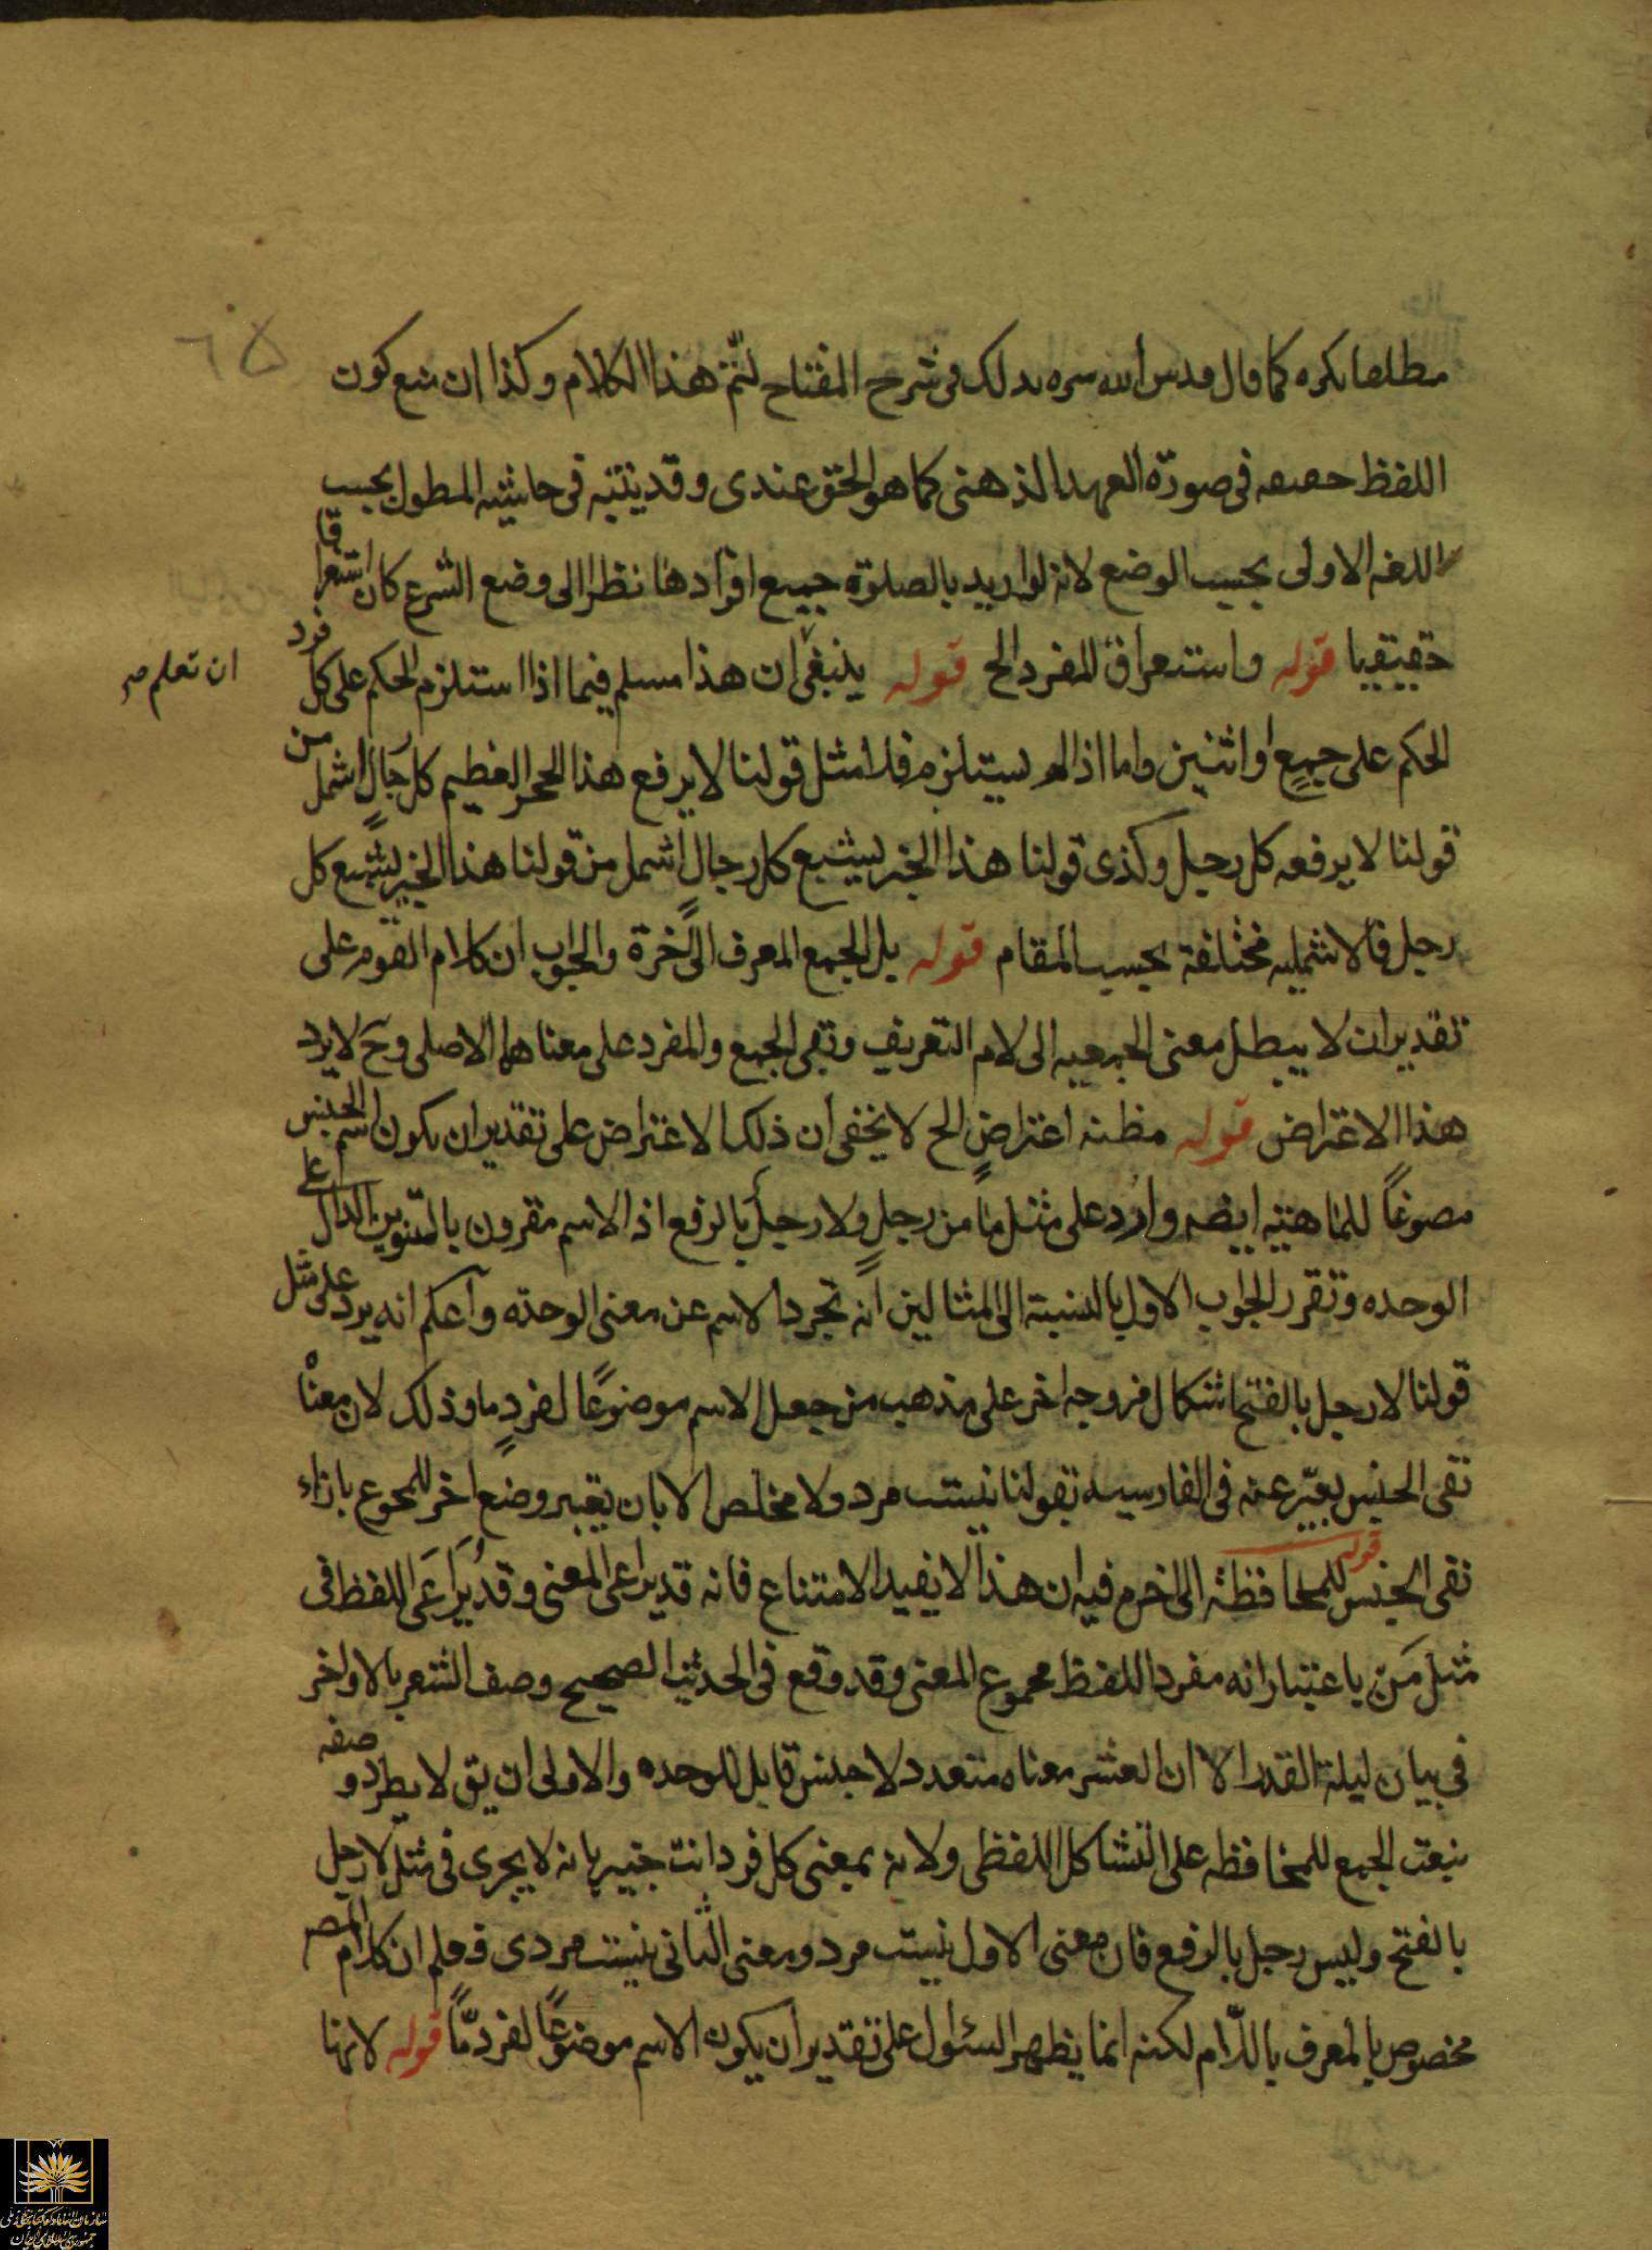 ٦٥
مطلعا نكره كما قال قدس الله سره بذلك فى شرح المفتاح لتمّ هذا الكلام وكذا ان منع كون
اللفظ حصصه فى صورة العهد الذهنى كما هو الحق عندى وقد بينته فى حاشيه المطول بحسب
اللغه الاولى بحسب الوضع لانه لو اريد بالصلوة جميع افرادها نظرا الى وضع الشرع كان استغراقا
حقيقيا قوله واستغراق المفرد الخ قوله ينبغى ان هذا مسلم فيما اذا استلزم الحكم على كل فرد
ان تعلم صح
الحكم على جميع او اثنين واما اذا لم يستلزم فلا مثل قولنا لا يرفع هذا الحجر العظيم كل رجال اشمل من
قولنا لا يرفعه كل رجل وكذى قولنا هذا الخبز يشبع كل رجال اشمل من قولنا هذا الخبز يشبع كل
رجل فالاشمليه مختلفة بحسب المقام قوله بل الجمع المعرف الى اخره والجواب ان كلام القوم على
تقدير ان لا يبطل معنى الجمعيه الى لام التعريف وتقى الجمع والمفرد على معناهما الاصلى وح لا يرد
هذا الاعتراض قوله مظنه اعتراض الخ لا يخفى ان ذلك الاعتراض على تقدير ان يكون اسم الجنس
موضوعاً للماهيته ايضه وارد على مثل ما من رجل ولا رجل بالرفع اذ الاسم مقرون بالتنوين الدال على
الوحده وتقرر الجواب الاول بالنسبة الى المثالين انه تجرد الاسم عن معنى الوحدته واعلم انه يرد على مثل
قولنا لا رجل بالفتح اشكال من وجه اخر على مذهب من جعل الاسم موضوعًا لفردٍ ما وذلك لان معناه
نفى الجنس يعبّر عنه فى الفارسيه بقولنا نيست مرد ولا مخلص الا بان يعتبر وضع اخر للمجموع بازاء
نفى الجنس قوله للمحافظة الى اخره فيه ان هذا لا يفيد الامتناع فانه قد يراعى المعنى وقد يراعى اللفظ فى
مثل مَن باعتبار انه مفرد اللفظ مجموع المعنى وقد وقع فى الحديث الصحيح وصف العشر بالاواخر
فى بيان ليلة القدر الا ان العشر معناه متعدد لا جنس قابل للوحده والاولى ان يق لا يطرد وصفه
بنعت الجمع للمحافظه على التشاكل اللفظى ولانه بمعنى كل فرد انت خبير بانه لا يجرى فى مثل لا رجل
بالفتح وليس رجل بالرفع فان معنى الاول نيست مرد ومعنى الثانى نيست مردى فعلم ان كلام المص
مخصوص بالمعرف باللّام لكنه انما يظهر السئوال على تقدير ان يكون الاسم موضوعًا لفرد مّا قوله لانها